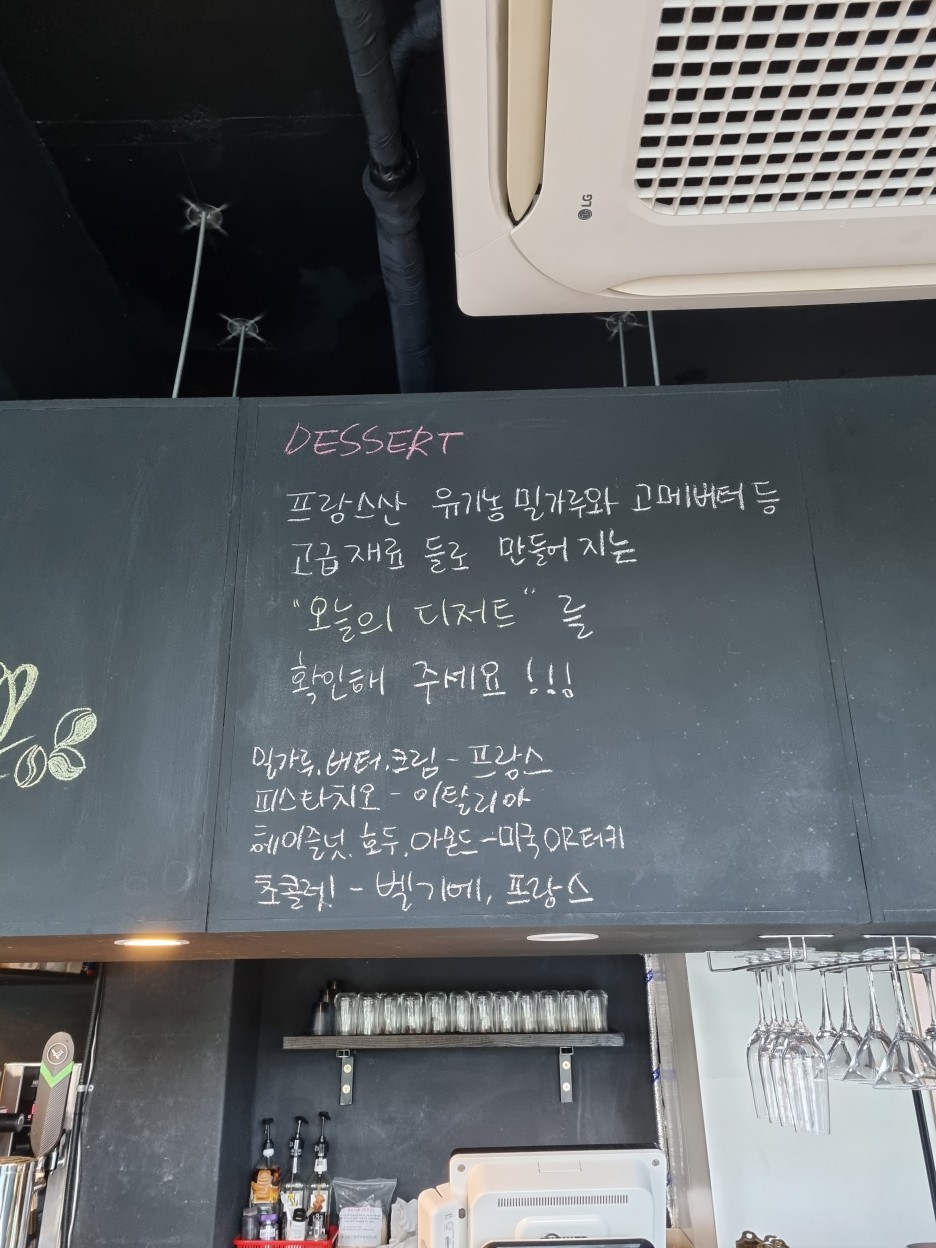 LG
DESSERT
프랑스산 유기농 밀가루와 고메버터 등
고급 재료 들로 만들어 지는
"오늘의 디저트" 를
확인해 주세요 !!!
밀가루.버터.크림 - 프랑스
피스타치오 - 이탈리아
헤이즐넛. 호두. 아몬드 - 미국 OR 터키
초콜렛! - 벨기에, 프랑스